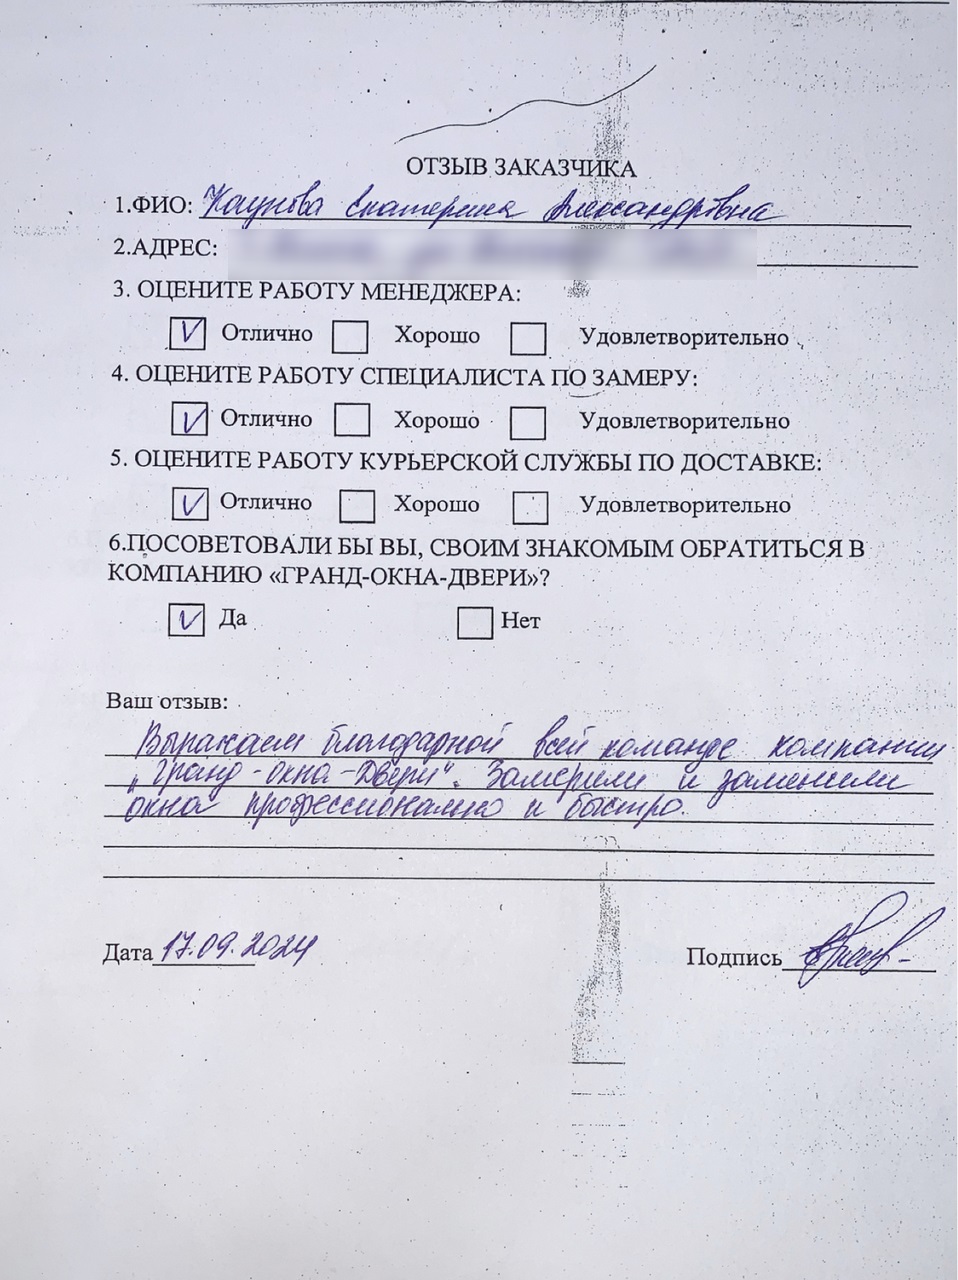 ОТЗЫВ ЗАКАЗЧИКА
1.ФИО: Каунова Екатерина Александровна
2.АДРЕС:
3. ОЦЕНИТЕ РАБОТУ МЕНЕДЖЕРА:
V Отлично Хорошо Удовлетворительно
4. ОЦЕНИТЕ РАБОТУ СПЕЦИАЛИСТА ПО ЗАМЕРУ:
V Отлично Хорошо Удовлетворительно
5. ОЦЕНИТЕ РАБОТУ КУРЬЕРСКОЙ СЛУЖБЫ ПО ДОСТАВКЕ:
V Отлично Хорошо Удовлетворительно
6.ПОСОВЕТОВАЛИ БЫ ВЫ, СВОИМ ЗНАКОМЫМ ОБРАТИТЬСЯ В
КОМПАНИЮ «ГРАНД-ОКНА-ДВЕРИ»?
V Да Нет
Ваш отзыв:
Выражаем всей команде компании
„Гранд-окна-Двери“. Замерили и заменили
окна профессионально и быстро.
Дата 17.09.2024 Подпись